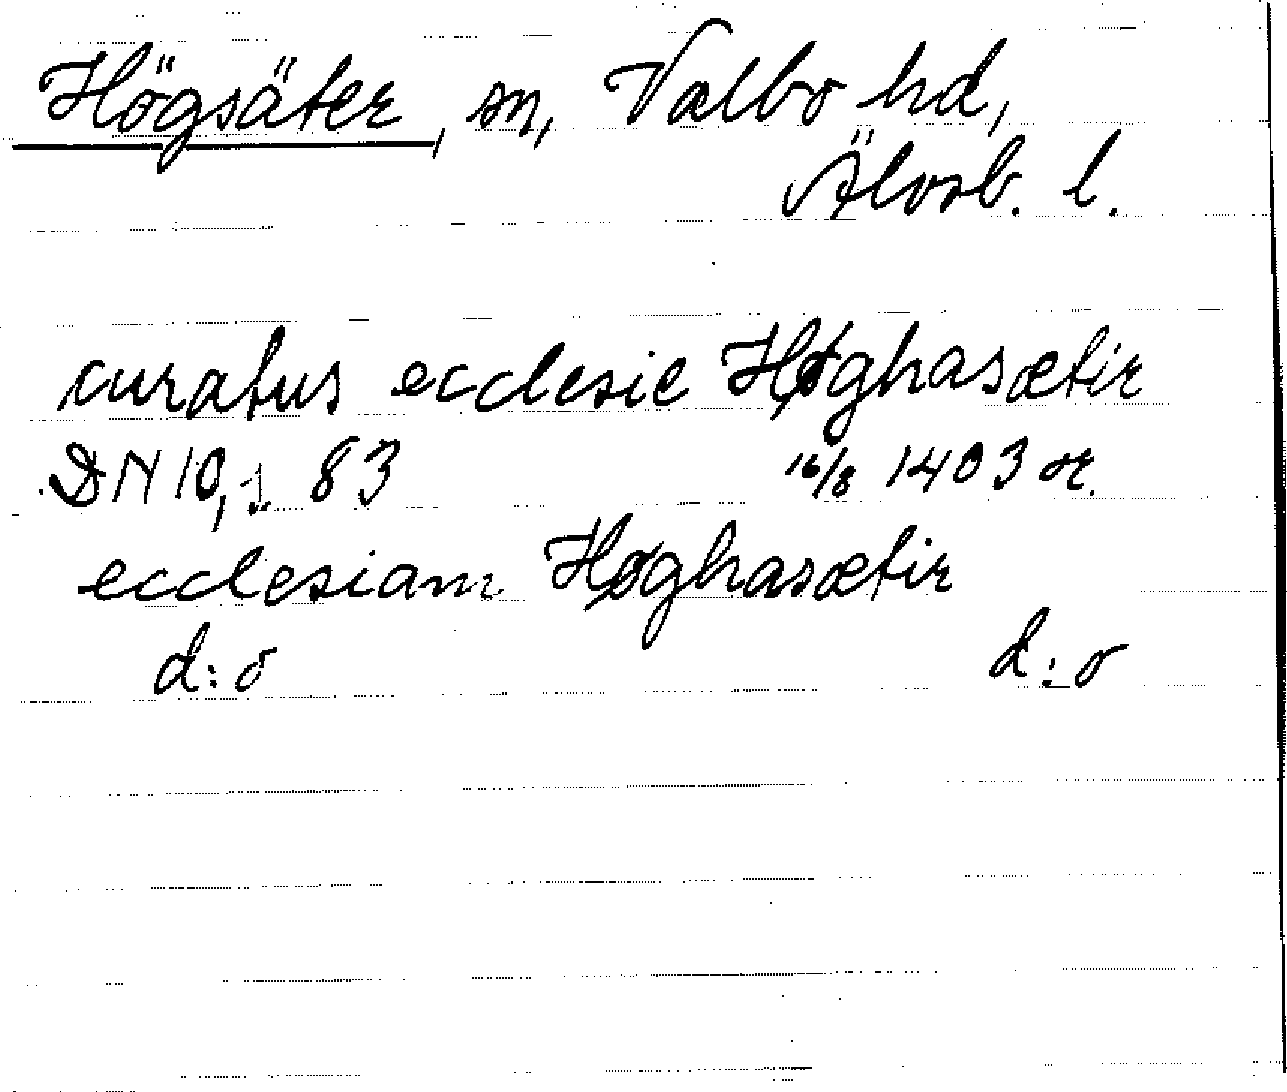 Högsäter, sn, Valbo hd,
Älvsb. l.
curatus ecclesie Høghasætir
DN 10, 1 83 16/8 1403 or.
ecclesiam Høghasætir
d:o d:o